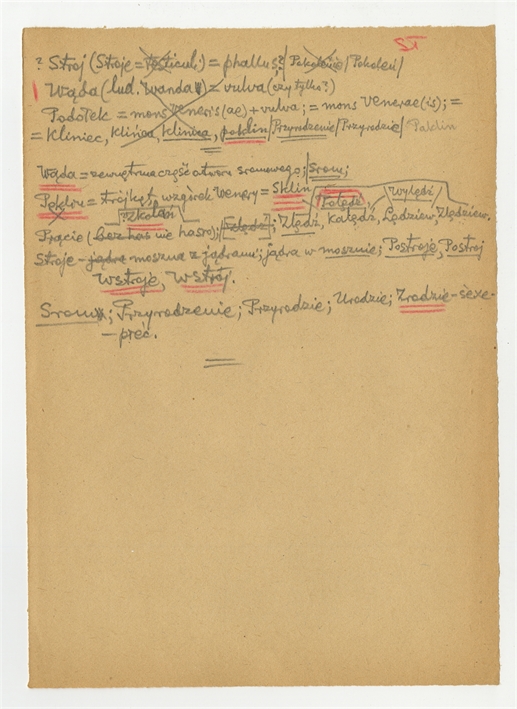 ? Stroj (Stroje = testiculi) = phallus?/ Pokolenie/ Pokoleń/
Wąda (lud. Wanda) = vulva (czy tylko?)
Podołek = mons veneris (ae) + vulva; = mons Venerae (is); =
= Kliniec, Klinica, Klinica, pęklin/Przyrodzenie/Przyrodzie/ Paklin
Wąda = zewnętrzna część otworu sromowego;/Srom;
Pęklin = trójkąt, wzgórek Wenery = Sklin
Tołędź, Wylędź
Prącie (bez has nie hasło); ; Zlędź, Kałędź, Lędziew, Zlędziew.
Stroje - jądra moszna z jądrami; jądra w mosznie; Postroje, Postroj
Wstroje, Wstrój.
Srom; Przyrodzenie; Przyrodzie; Urodzie; Zrodzie - sexe -
- płeć.